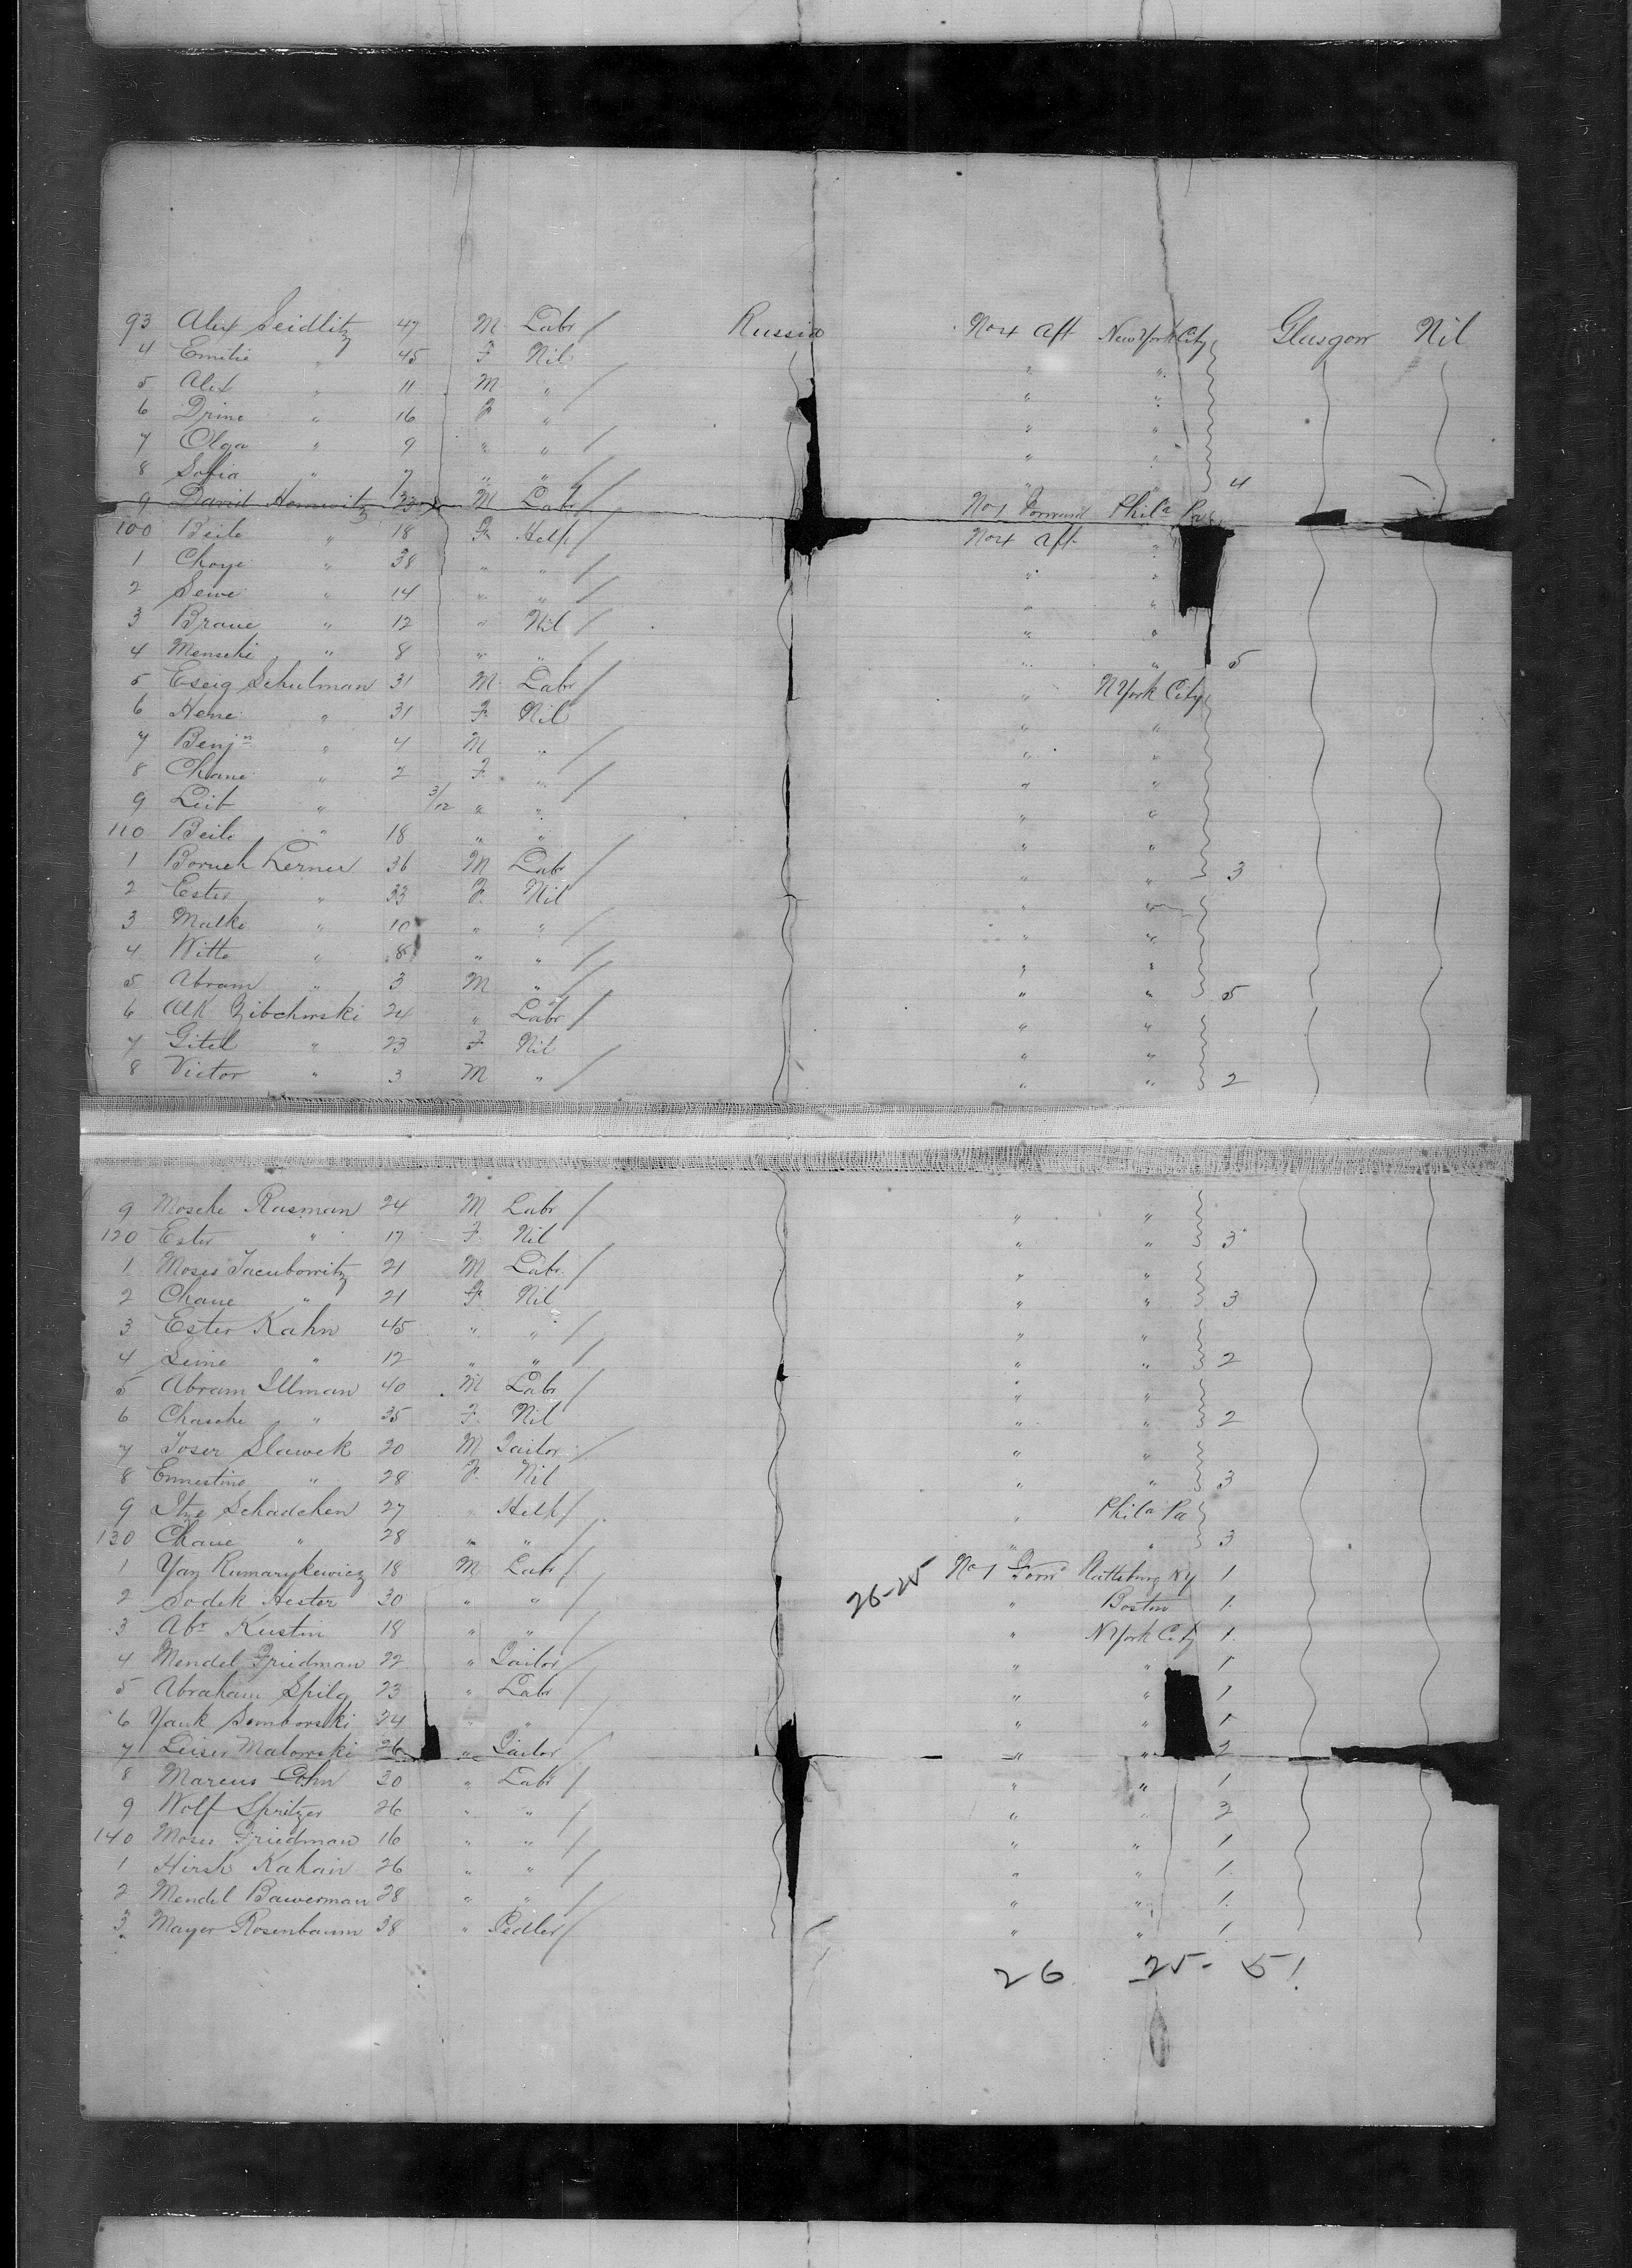 93 Alex Seidlitz 47 M Labr / Russia No 4 Aft New York City Glasgow Nil
4 Emilie " 45 F Nil " "
5 Alex " 11 M " / " "
6 " 16 F " " "
7 Olga " 9 " " / " "
8 Sofia " 7 " " / " " 4
9 David Horrowitz 33 M Labr / No 1 Forward Phila Pa
100 Beile " 18 F Help / No 4 Aft "
1 Chaye " 38 " " / " "
2 " 14 " " / " "
3 Braue " 12 " Nil / " "
4 Mensche " 8 " " / " " 5
5 Eseig Schulman 31 M Labr / " N York City
6 Hene " 31 F Nil " "
7 Benjn " 4 M " / " "
8 Chane " 2 F " / " "
9 Leib " 3/12 " " " "
110 Beile " 18 " " / " "
1 Boruch Lerner 36 M Labr / " " 3
2 Ester " 33 F Nil " "
3 Malke " 10 " " / " "
4 Witte " 8 " " / " "
5 Abram " 3 M " / " " 5
6 24 " Labr / " "
7 Gitel " 23 F Nil " "
8 Victor " 3 M " / " " 2
9 Mosche Rasman 24 M Labr / " "
120 Ester " 17 F Nil " " 3
1 Moses Jacubowitz 21 M Labr / " "
2 Chane " 21 F Nil " " 3
3 Ester Kahn 45 " " / " "
4 " 12 " " / " " 2
5 Abram Illman 40 M Labr / " "
6 Chasche " 35 F Nil " " 2
7 Joser Slawek 20 M Tailor / " "
8 Ernestine " 28 F Nil " " 3
9 Itze Schadchen 27 " Help / " Phila Pa
130 Chane " 28 " " / " " 3
1 Yan Rumarykewicz 18 M Labr / 26-25 No 1 Forwd Plattsburg NY 1
2 Sodek Hester 30 " " / " Boston 1
3 Abr Kustin 18 " " / " N York City 1
4 Mendel Friedman 22 " Tailor / " " 1
5 Abraham Spilg 23 " Labr / " " 1
6 Yank Somborski 24 " " / " " 1
7 Leiser Malowski 26 " Tailor / " " 2
8 Marcus Cohn 30 " Labr / " " 1
9 Wolf Spritzer 26 " " / " " 2
140 Moses Friedman 16 " " / " " 1
1 Hirsh Kahain 26 " " / " " 1
2 Mendel Bawerman 28 " " / " " 1
3 Mayer Rosenbaum 38 " Pedler / " " 1
26 25- 51